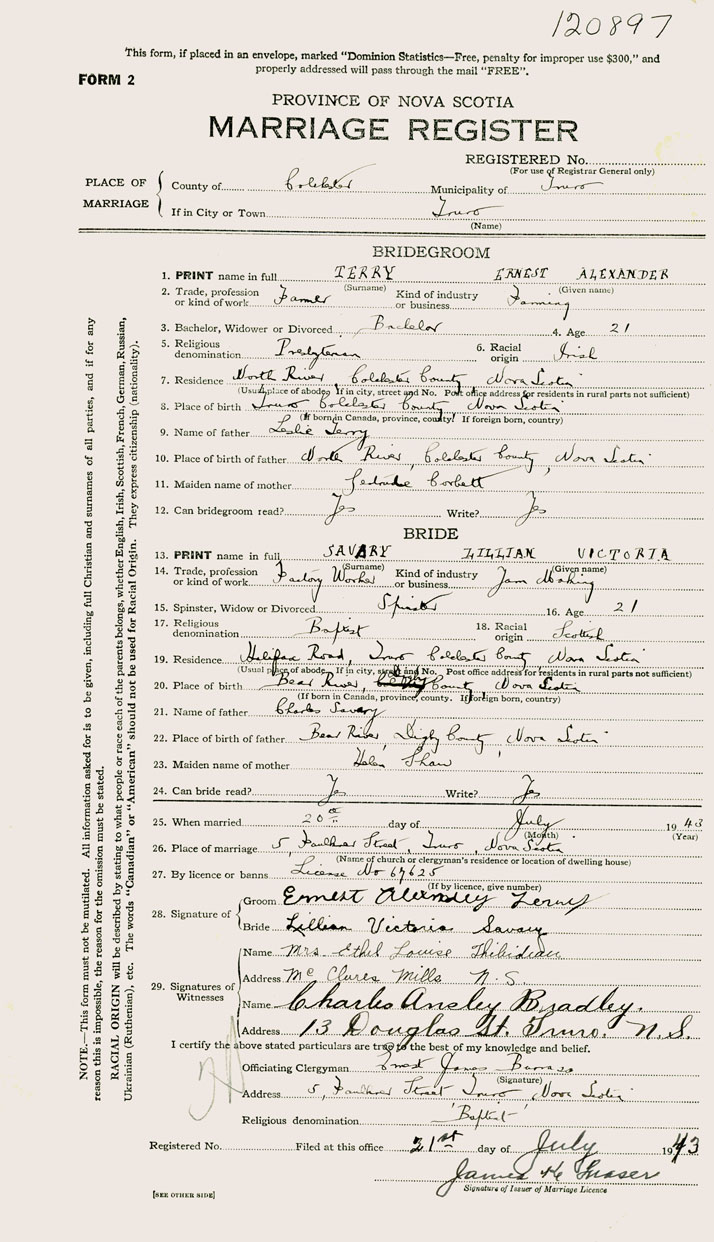 120897
This form, if placed in an envelope, marked "Dominion Statistics—Free, penalty for improper use $300," and
properly addressed will pass through the mail "FREE".
FORM 2
PROVINCE OF NOVA SCOTIA
MARRIAGE REGISTER
REGISTERED No.
(For use of Registrar General only)
PLACE OF MARRIAGE
County of Colchester Municipality of Truro
If in City or Town Truro
(Name)
BRIDEGROOM
1. PRINT name in full TERRY ERNEST ALEXANDER
(Surname) (Given name)
2. Trade, profession or kind of work Farmer Kind of industry or business Farming
3. Bachelor, Widower or Divorced Bachelor 4. Age 21
5. Religious denomination Presbyterian 6. Racial origin Irish
7. Residence North River, Colchester County Nova Scotia
(Usual place of abode. If in city, street and No. Post office address for residents in rural parts not sufficient)
8. Place of birth Truro Colchester County Nova Scotia
(If born in Canada, province, county. If foreign born, country)
9. Name of father Leslie Terry
10. Place of birth of father North River, Colchester County, Nova Scotia
11. Maiden name of mother Gertrude Corbett
12. Can bridegroom read? Yes Write? Yes
BRIDE
13. PRINT name in full SAVARY LILLIAN VICTORIA
(Surname) (Given name)
14. Trade, profession or kind of work Factory Worker Kind of industry or business Jam Making
15. Spinster, Widow or Divorced Spinster 16. Age 21
17. Religious denomination Baptist 18. Racial origin Scottish
19. Residence Halifax Road, Truro Colchester County Nova Scotia
(Usual place of abode. If in city, street and No. Post office address for residents in rural parts not sufficient)
20. Place of birth Bear River, County, Nova Scotia
(If born in Canada, province, county. If foreign born, country)
21. Name of father Charles Savary
22. Place of birth of father Bear River, Digby County, Nova Scotia
23. Maiden name of mother Helen Shaw
24. Can bride read? Yes Write? Yes
25. When married 20th day of July 1943
(Month) (Year)
26. Place of marriage 5, Faulkner Street, Truro, Nova Scotia
(Name of church or clergyman's residence or location of dwelling house)
27. By licence or banns License No 67625
(If by licence, give number)
28. Signature of
Groom Ernest Alexander Terry
Bride Lillian Victoria Savary
29. Signatures of Witnesses
Name Mrs Ethel Louise Thibideau
Address McClures Mills N.S.
Name Charles Ansley Bradley.
Address 13 Douglas St. Truro. N.S.
I certify the above stated particulars are true to the best of my knowledge and belief.
Officiating Clergyman Ernest James
(Signature)
Address 5, Faulkner Street Truro, Nova Scotia
Religious denomination "Baptist"
Registered No. Filed at this office 21st day of July 1943
James H Fraser
Signature of Issuer of Marriage Licence
[SEE OTHER SIDE]
NOTE.—This form must not be mutilated. All information asked for is to be given, including full Christian and surnames of all parties, and if for any
reason this is impossible, the reason for the omission must be stated.
RACIAL ORIGIN will be described by stating to what people or race each of the parents belongs, whether English, Irish, Scottish, French, German, Russian,
Ukrainian (Ruthenian), etc. The words "Canadian" or "American" should not be used for Racial Origin. They express citizenship (nationality).